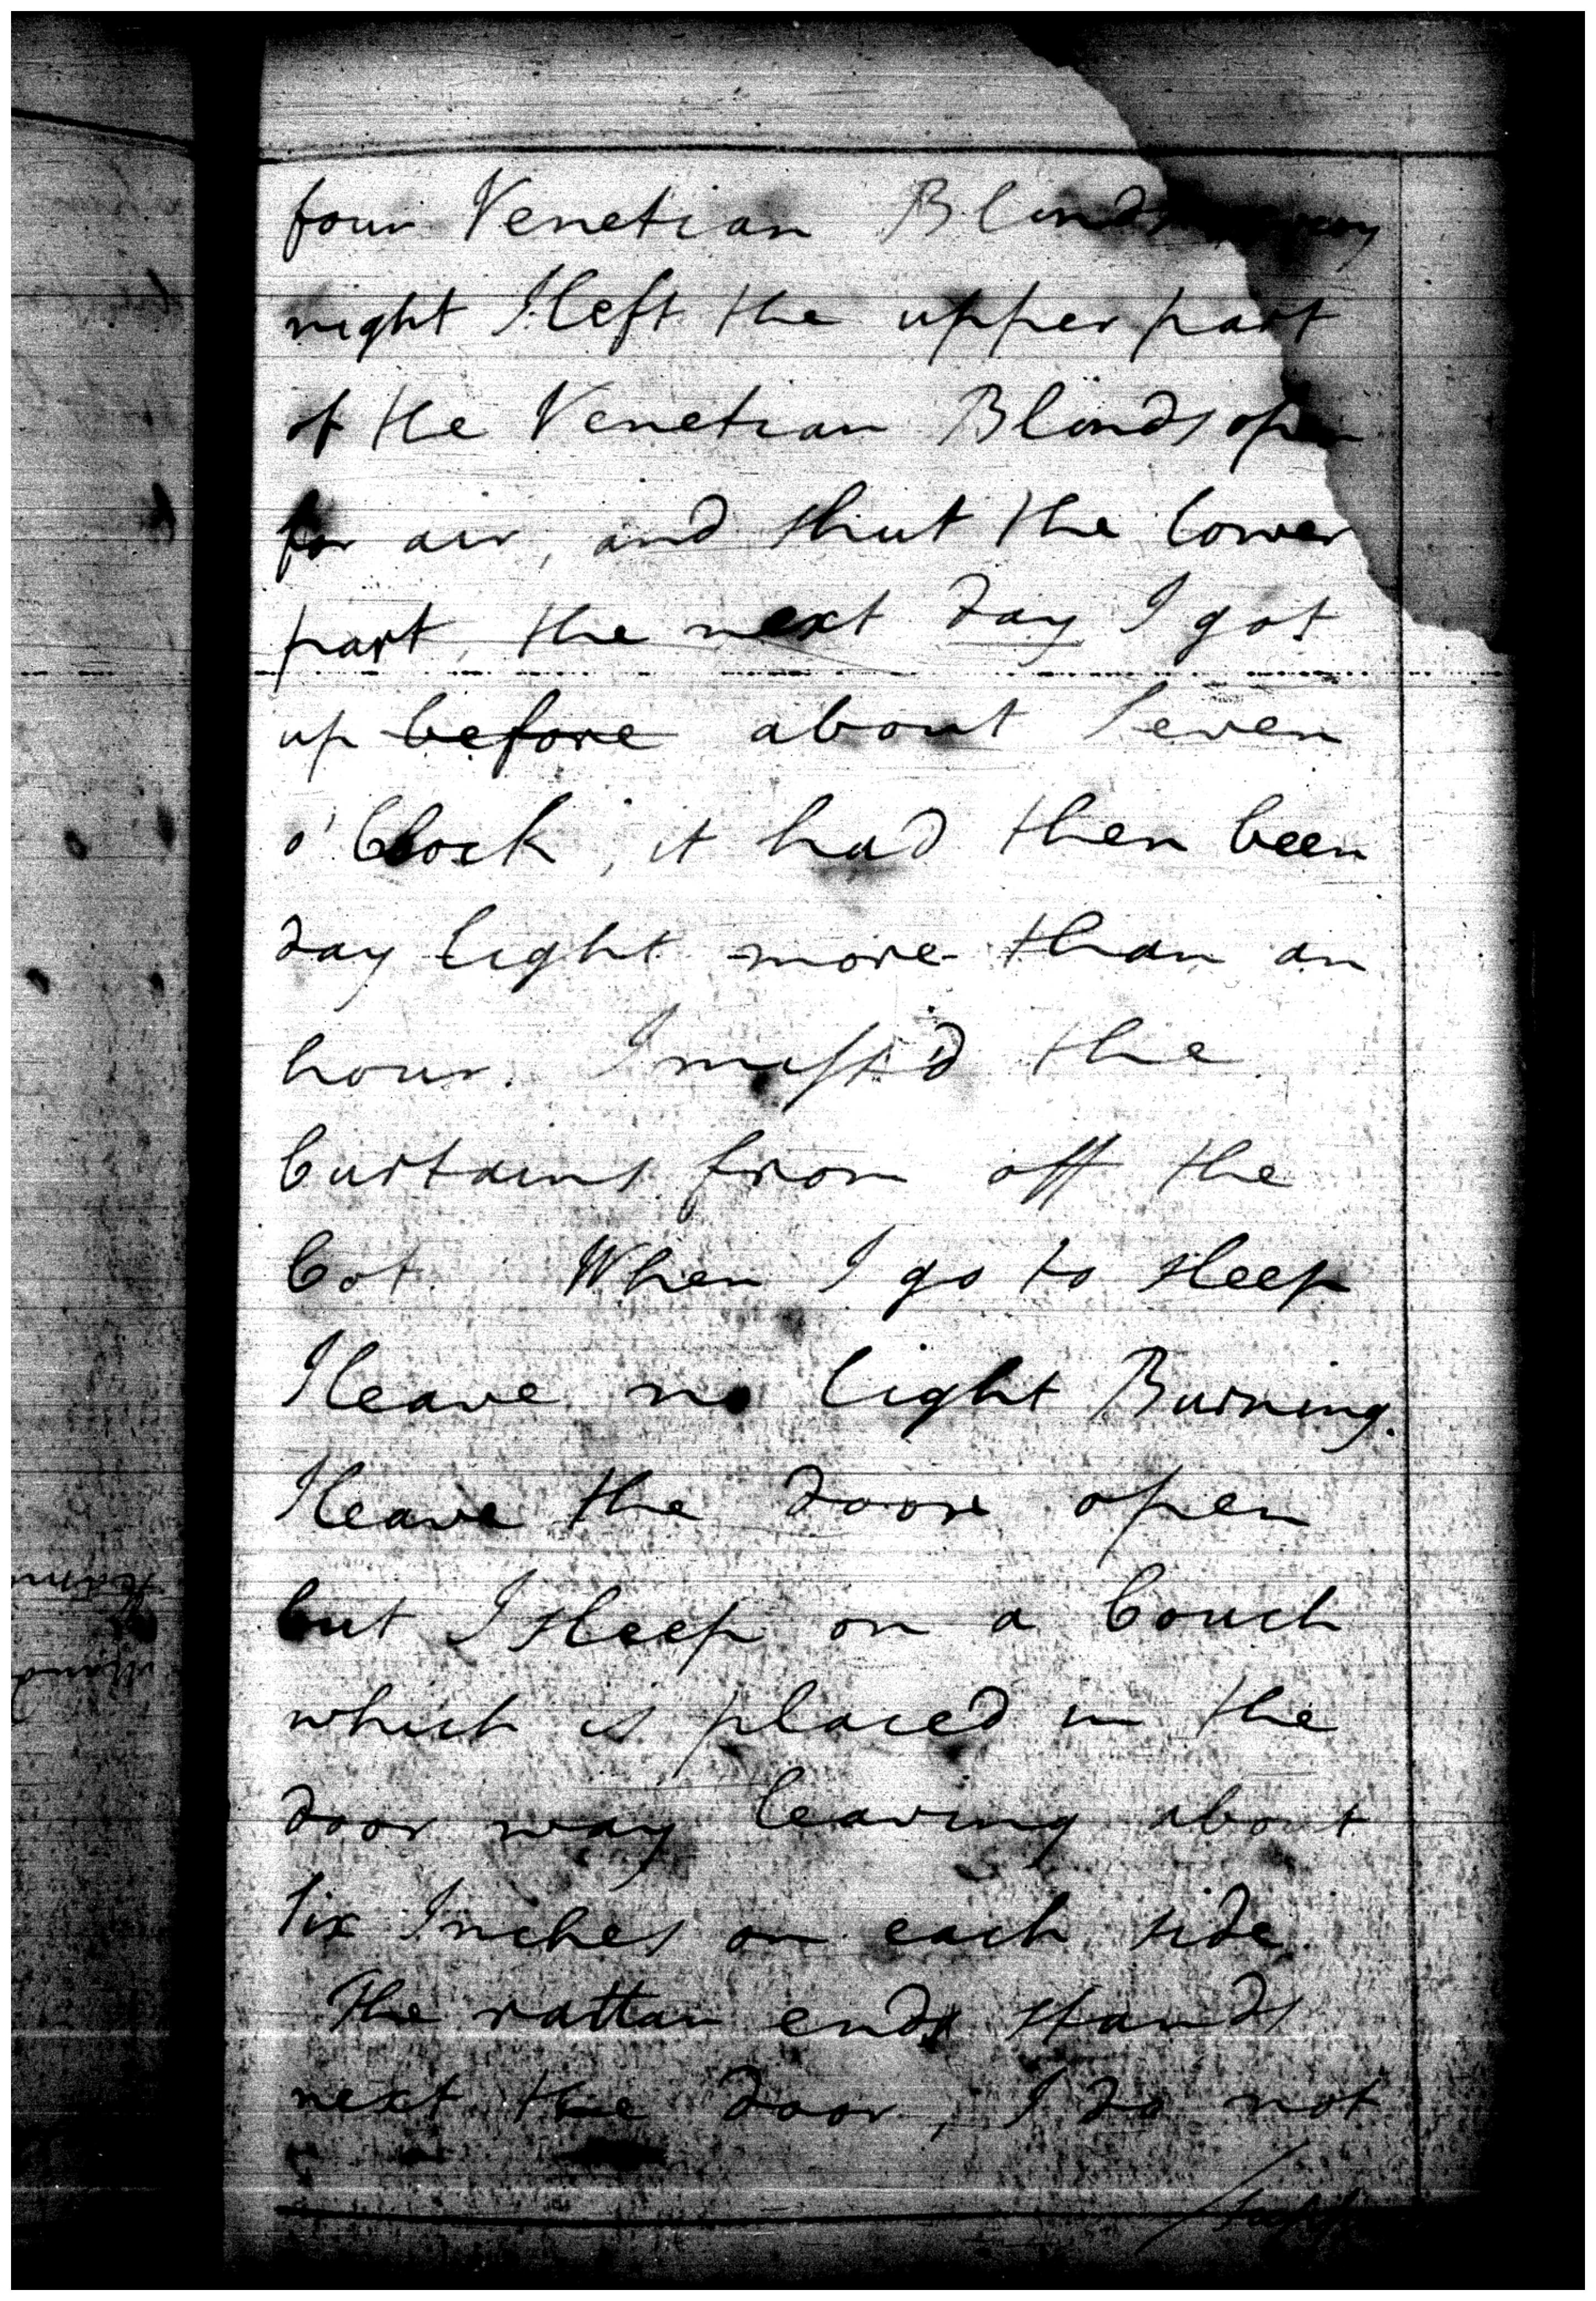 four Venetian Blinds
night I left the upper part
of the Venetian Blinds open
for air, and shut the lower
part, the next day I got
up before about Seven
o'Clock, it had then been
day light more than an
hour. I miss'd the
Curtains from off the
Cot. When I go to sleep
I leave no light Burning.
I leave the door open
but I sleep on a Couch
which is placed in the
door way leaving about
Six Inches on each side.
The rattan ends stands
next the door, I do not